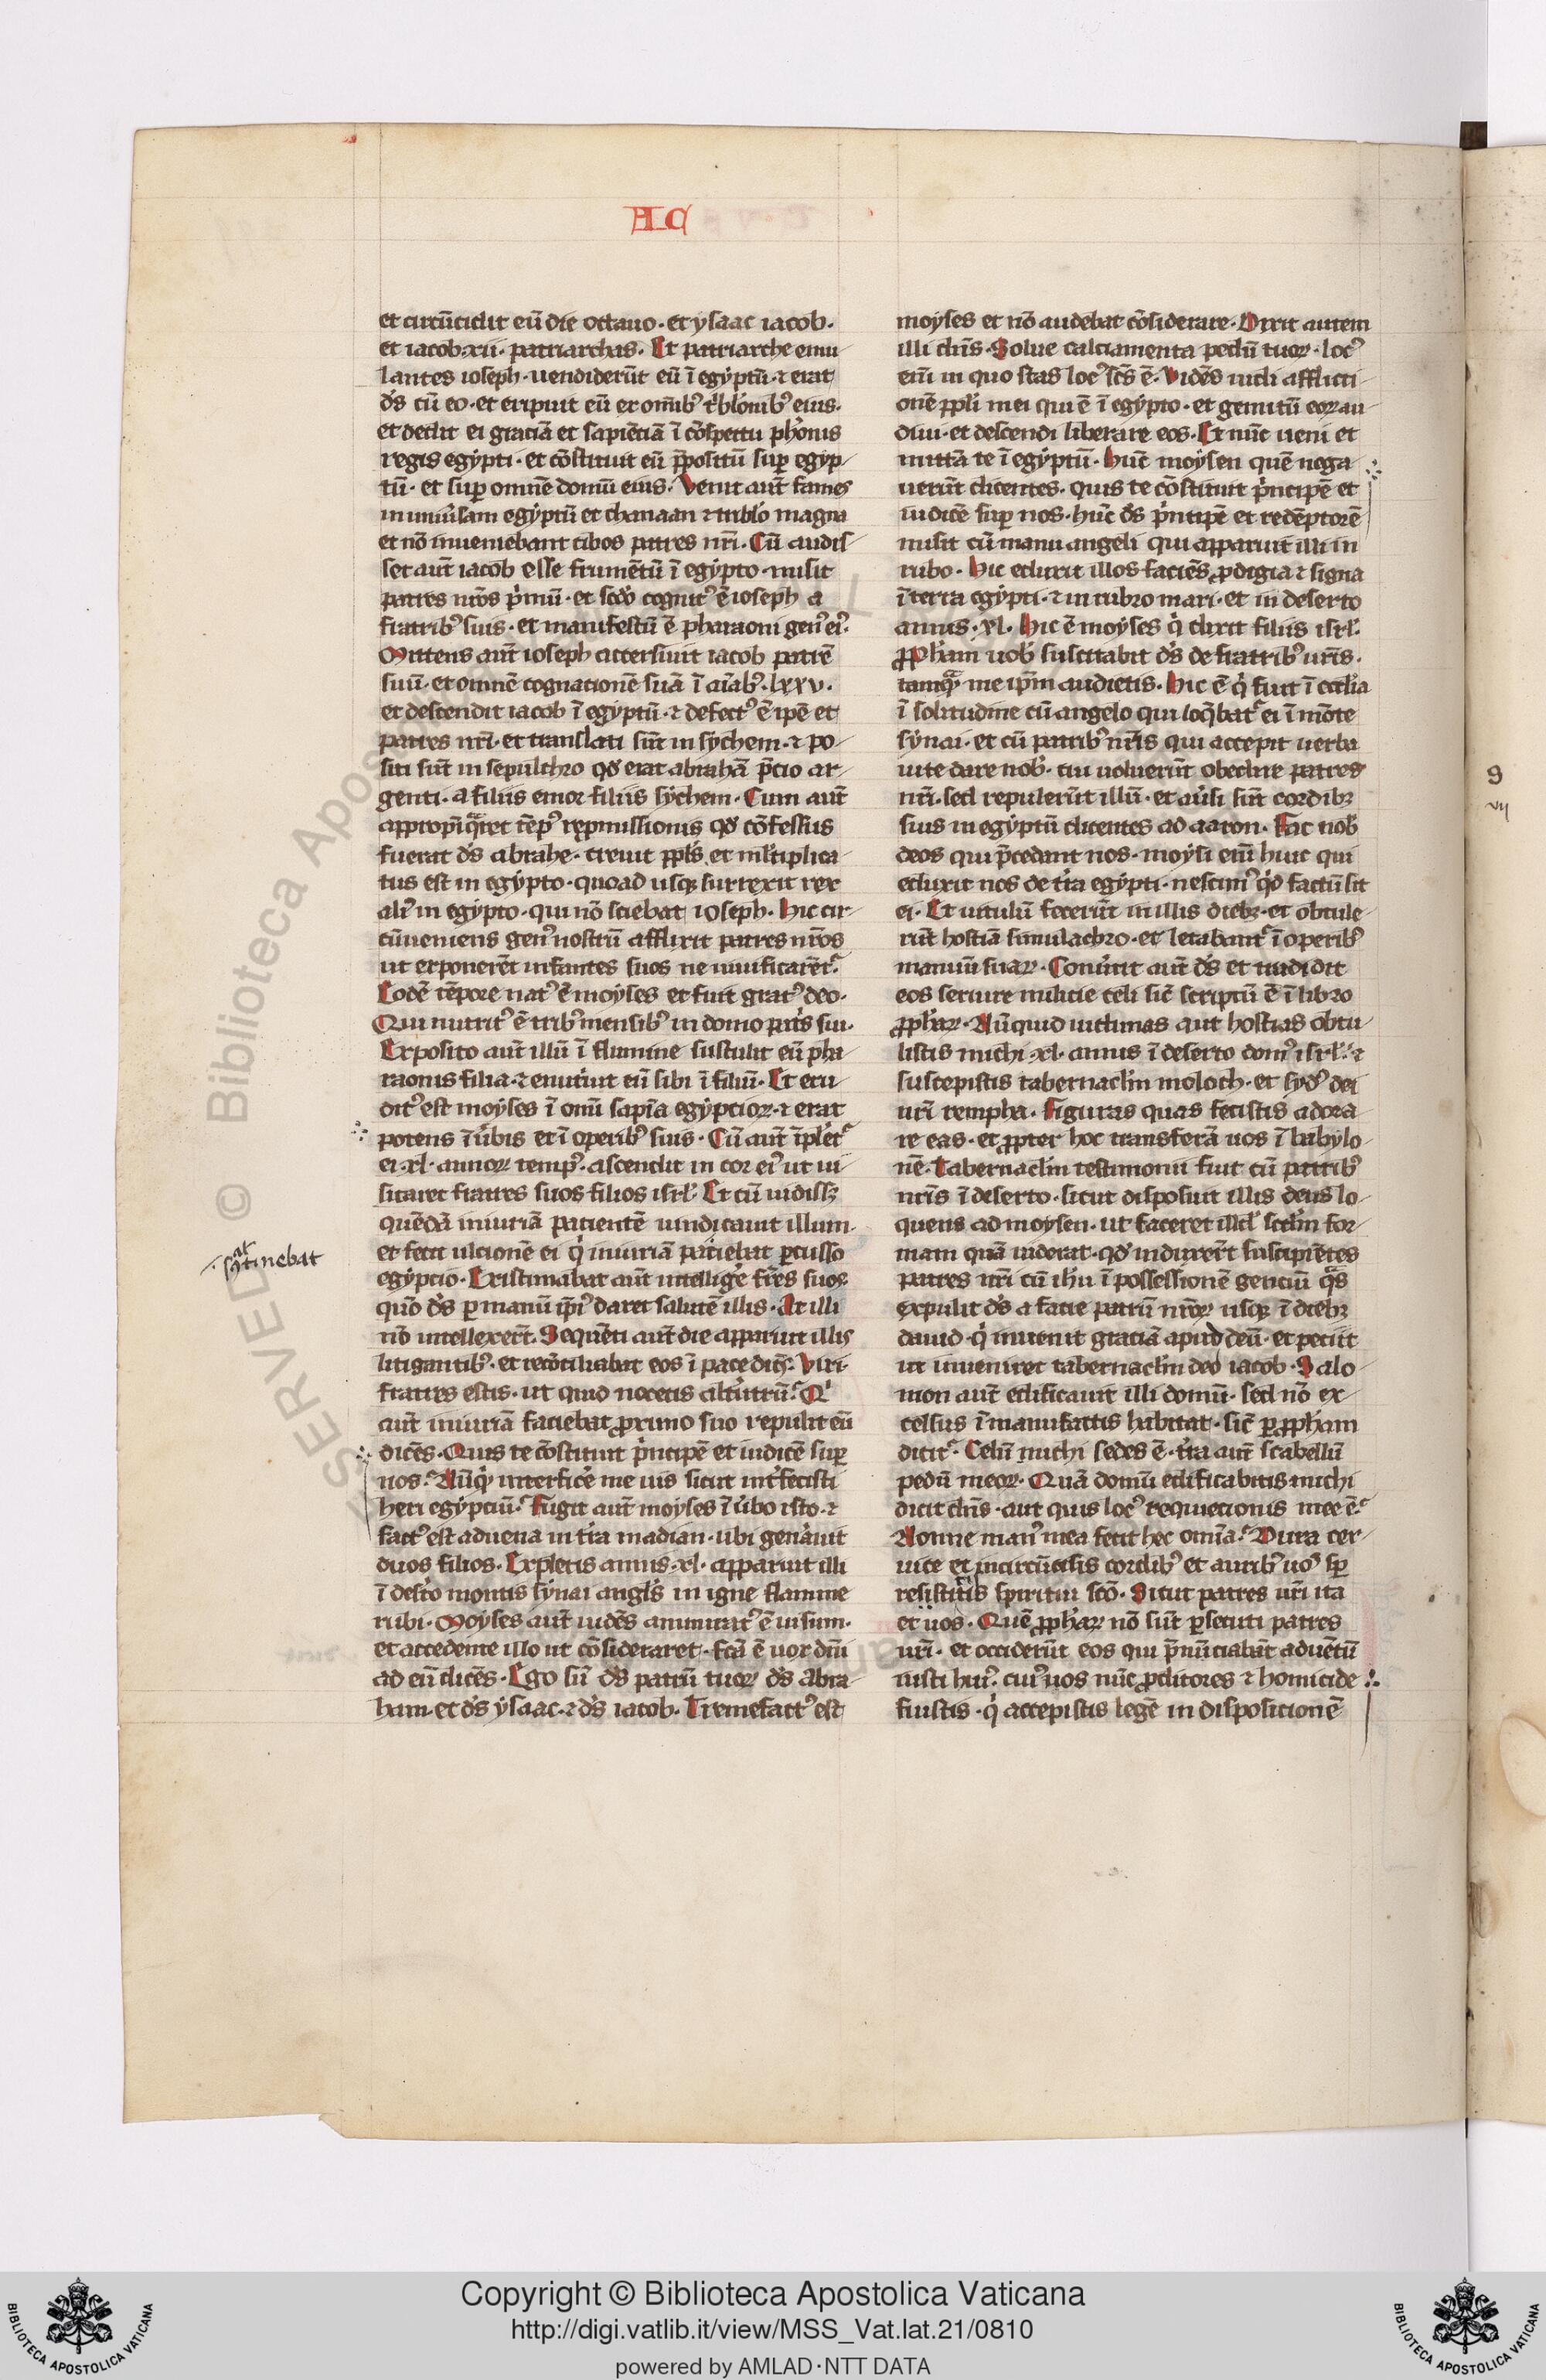 AC
et circūcidit eū die octauo · et ysaac iacob ·
et iacob · xii · patriarchas · Et patriarche emu
lantes ioseph · uendiderūt eū ī egyptū · ⁊ erat
ds̄ cū eo · et eripuit eū ex omīb᷒ t͛blōnib᷒ eius ·
et dedit ei graciā et sapiētiā ī cōspectu phōnis
regis egypti · et cōstituit eū p̄positū sup̄ egyp-
tū · et sup̄ omnē domū eius · Venit aut̄ fames
in uniu͛sam egyptū et chanaan ⁊ tribl̓o magna
et nō inueniebant cibos patres nr̄i · Cū audis-
set aut̄ iacob esse frumētū ī egypto · misit
patres nr̄os p͛mū · et scdō cognit᷒ ē ioseph a
fratrib᷒ suis · et manifestū ē pharaoni gen᷒ ei᷒ ·
Mittens aut̄ ioseph accersiuit iacob patrē
suū · et omnē cognationē suā ī aīab᷒ · lxxv ·
et descendit iacob ī egyptū · ⁊ defect᷒ ē ip̄e et
patres nr̄i · et translati sūt in sychem · ⁊ po-
siti sūt in sepulchro qd̓ erat abrahā p̄cio ar-
genti · a filiis emor filiis sychem · Cum aut̄
appropīq̄ret tēp᷒ repmissionis qd̓ cōfessus
fuerat ds̄ abrahe · creuit ppl̓s et ml̓tiplica-
tus est in egypto · quoad usq; surrexit rex
ali᷒ in egypto · qui nō sciebat ioseph · Hic cir-
cūueniens gen᷒ nostrū afflixit patres nr̄os
ut exponerēt infantes suos ne uiuificarēt᷑
Eodē tēpore nat᷒ ē moyses et fuit grat᷒ deo ·
Qui nutrit᷒ ē trib᷒ mensib᷒ in domo pat͛s sui ·
Exposito aut̄ illū ī flumine sustulit eū pha-
raonis filia · ⁊ enutriuit eū sibi ī filiū · Et eru
dit᷒ est moyses ī om̄i sapīa egyptioꝝ · ⁊ erat
potens ī u͛bis et ī operib᷒ suis · Cū aut̄ īpl̓et᷑
ei · xl · annoꝝ temp᷒ · ascendit in cor ei᷒ ut ui-
sitaret fratres suos filios isrl̓ · Et cū uidissꝫ
quēdā iniuriā patientē uindicauit illum ·
at
· s᷒tinebat
et fecit ulcionē ei q̇ iniuriā patiebat ꝑcusso
egyptio · Existimabat aut̄ intellig͛e fr̄es suos
quō ds̄ ꝑ manū ip̄i᷒ daret salutē illis · At illi
nō intellexer̄t · Sequēti aut̄ die apparuit illis
litigantib᷒ · et recōciliabat eos ī pace dic̄s · Viri ·
fratres estis · ut quid nocetis alt͛utrū · Q᷑
aut̄ iniuriā faciebat ꝓximo suo repulit eū
dicēs · Quis te cōstituit p͛ncipē et iudicē sup̄
nos · Nūq̇d interfic͛e me uis sicut int͛fecisti
heri egyptiū · Fugit aut̄ moyses ī u͛bo isto · ⁊
fact᷒ est aduena in t͛ra madian · ubi gen͛auit
duos filios · Expletis annis · xl · apparuit illi
ī des͛to montis synai angl̓s in igne flamme
rubi · Moyses aut̄ uidēs ammirat᷒ ē uisum ·
et accedente illo ut cōsideraret · fc̄a ē uox dn̄i
ad eū dicēs · Ego sū ds̄ patrū tuoꝝ ds̄ abra-
ham · et ds̄ ysaac · ⁊ ds̄ iacob · Tremefact᷒ est
moyses et nō audebat cōsiderare · Dixit autem
illi dn̄s · Solue calciamenta pedū tuoꝝ · loc᷒
eni̅ in quo stas loc᷒ sc̄s ē · Vidēs uidi afflicti-
onē ppl̓i mei qui ē ī egypto · et gemitū eoꝝ au-
diui · et descendi liberare eos · Et nūc ueni et
mittā te ī egyptū · Hūc moysen quē nega
uerūt dicentes · quis te cōstituit p͛ncipē et
iudicē sup̄ nos · hūc ds̄ p͛ncipē et redēptorē
misit cū manu angeli qui apparuit illi in
rubo · Hic eduxit illos faciēs ꝓdigia ⁊ signa
ī terra egypti · ⁊ in rubro mari · et in deserto
annis · xl · Hic ē moyses q̇ dixit filiis isrl̓ ·
Proph̄am uob̄ suscitabit ds̄ de fratrib᷒ ur̄is ·
tamq̄ me ip̄m audietis · Hic ē q̇ fuit ī eccl̓ia
ī solitudine cū angelo qui loq̄bat᷑ ei ī mōte
synai · et cū patrib᷒ nr̄is qui accepit uerba
uite dare nob̄ · cui noluerūt obedire patres
nr̄i · sed repulerūt illū · et au͛si sūt cordibꝫ
suis in egyptū dicentes ad aaron · Fac nob̄
deos qui p̄cedant nos · moysi eni̅ huic qui
eduxit nos de t͛ra egypti · nescim᷒ q̇d factū sit
ei · Et uitulū fecerūt in illis diebꝫ · et obtule-
rūt hostiā simulachro · et letabant᷑ ī operib᷒
manuū suaꝝ · Conu͛tit aut̄ ds̄ et tradidit
eos seruire militie celi sic̄ scriptū ē ī libro
ꝓph̄aꝝ · Nūquid uictimas aut hostias obtu-
listis michi · xl · annis ī deserto dom᷒ isrl̓ · ⁊
suscepistis tabernacl̓m moloch · et syd᷒ dei
ur̄i rempha · Figuras quas fecistis adora-
re eas · et ꝓpter hoc transferā uos ī babylo-
nē · Tabernacl̓m testimonii fuit cū patrib᷒
nr̄is ī deserto · sicut disposuit illis deus lo-
quens ad moysen · ut faceret illd̓ scd̓m for-
mam quā uiderat · qd̓ induxer̄t suscipiētes
patres nr̄i cū ih̄u ī possessionē genciū q̄s
expulit ds̄ a facie patrū nr̄oꝝ usqꝫ ī diebꝫ
dauid · q̇ inuenit graciā apud deū · et peciit
ut inueniret tabernacl̓m deo iacob · Salo-
mon aut̄ edificauit illi domū · sed nō ex-
celsus ī manufactis habitat · sic̄ ꝑ ꝓph̄am
dicit᷑ · Celū michi sedes ē · t͛ra aut̄ scabellū
pedū meoꝝ · Quā domū edificabitis michi
dicit dn̄s · aut quis loc᷒ requietionis mee ē ·
Nonne man᷒ mea fecit hec omīa · Dura cer-
uice et incircūcisis cordib᷒ et aurib᷒ uos sp̄
resistitis spiritui scō · Sicut patres ur̄i ita
et uos · Quē ꝓph̄aꝝ nō sūt ꝑsecuti patres
ur̄i · et occiderūt eos qui p̄nūciabāt aduētū
iusti hui᷒ · cui᷒ uos nūc ꝓditores ⁊ homicide
fuistis · q̇ accepistis legē in disposicionē
9
vij
Copyright © Biblioteca Apostolica Vaticana
http://digi.vatlib.it/view/MSS_Vat.lat.21/0810
powered by AMLAD·NTT DATA
BIBLIOTECA APOSTOLICA VATICANA
BIBLIOTECA APOSTOLICA VATICANA